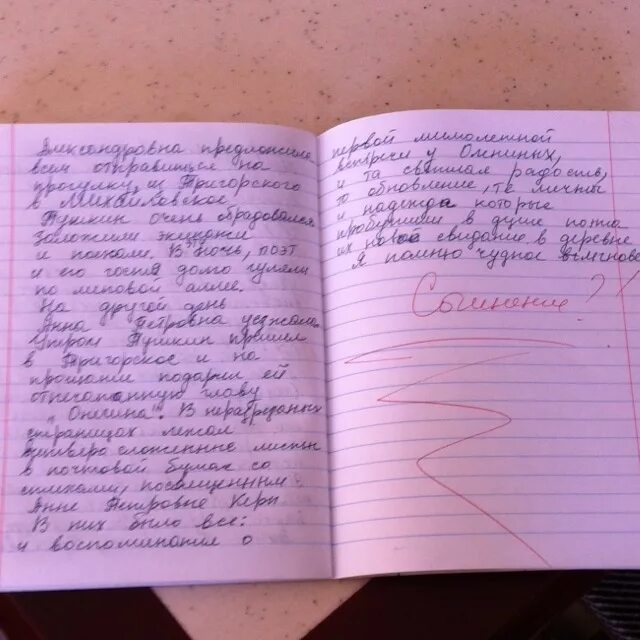 Александровна предложила
всем отправиться на
прогулку, из Тригорского
в Михайловское.
Пушкин очень обрадовался
заложили экипажи
и поехали. В ночь, поэт
и его гостья долго гуляли
по липовой аллее.
На другой день
Анна Петровна уезжала.
Утром Пушкин пришел
в Тригорское и на
прощание подарил ей
отпечатанную главу
„Онегина". В неразрезанных
страницах лежал
четверо сложенные листы
в почтовой бумаг со
стихами, посвященным
Анне Петровне Керн
В них было все:
и воспоминания о
первой мимолетной
встречи у Олениных,
и та светлая радость,
то обновление, те
и надежда которые
пробудили в душе поэта
их новое свидание в деревне
Я помню чудное мгновенье
Сочинение?